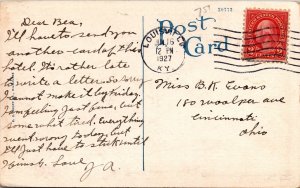 Dear Bea,
I'll have to send you
another card of this
hotel. It's rather late
to write a letter. So sorry
I cannot make it by Friday.
I am feeling just fine, but
somewhat tired. Everything
went wrong to day, but
I'll just have to stick until
Love
Post
Card
LOUISVILLE
12 PM
1927
KY.
Miss B. K. Evans
180 Woolper ave
Cincinnati
Ohio